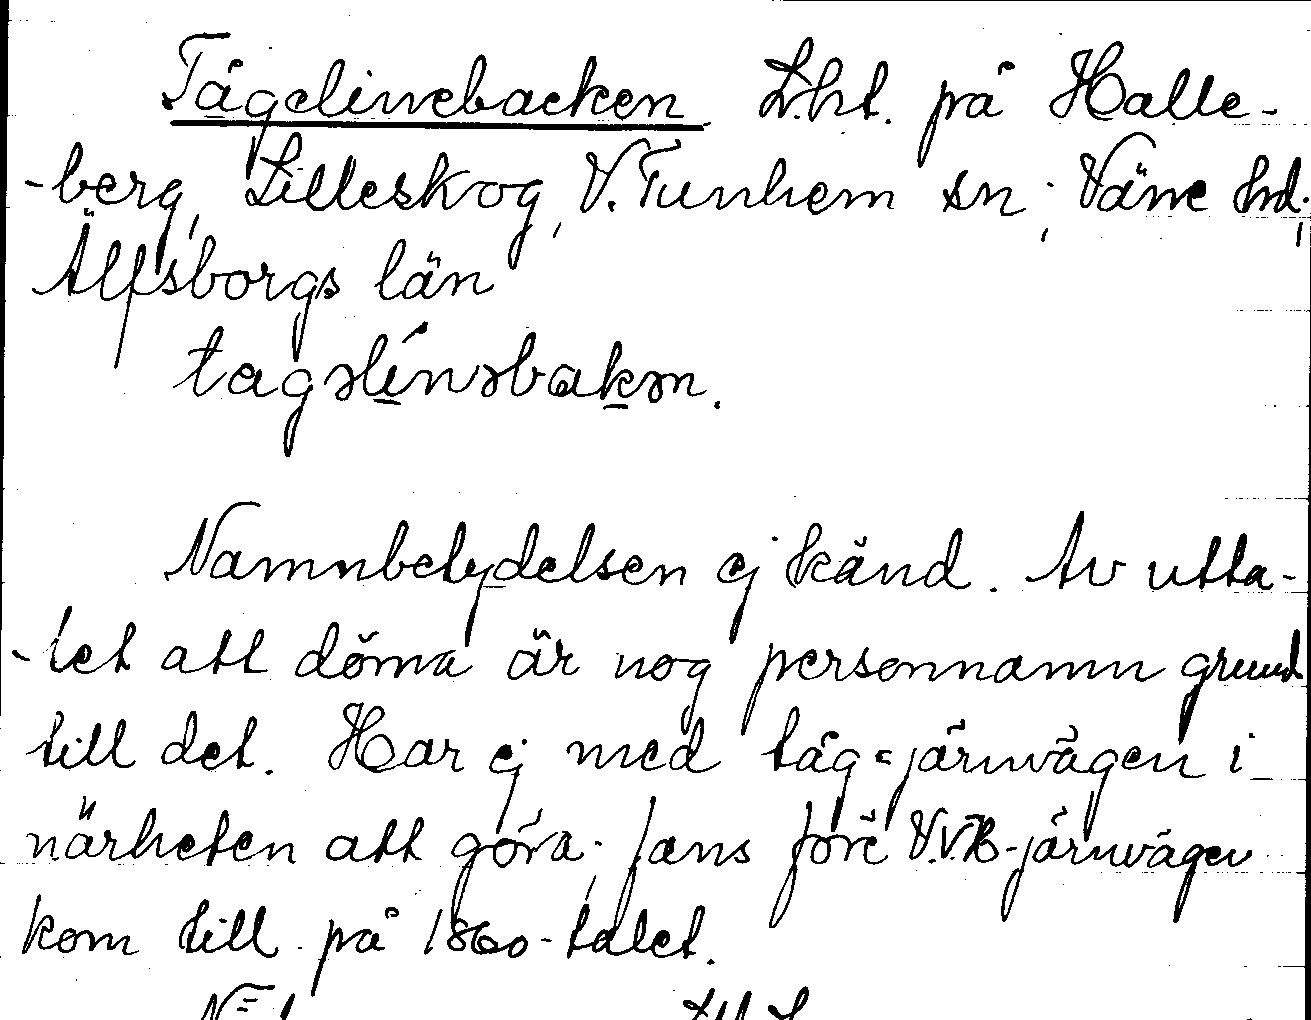 Tågelinebacken. Lht. på Halle-
-berg, Lilleskog, V. Tunhem sn; Väne hd;
Älfsborgs län
tagəlínəbakən.
Namnbetydelsen ej känd. Av utta-
-let att döma är nog personnamn grund
till det. Har ej med tåg=järnvägen i
närheten att göra; fans före V.V.B-järnvägen
kom till på 1860-talet.